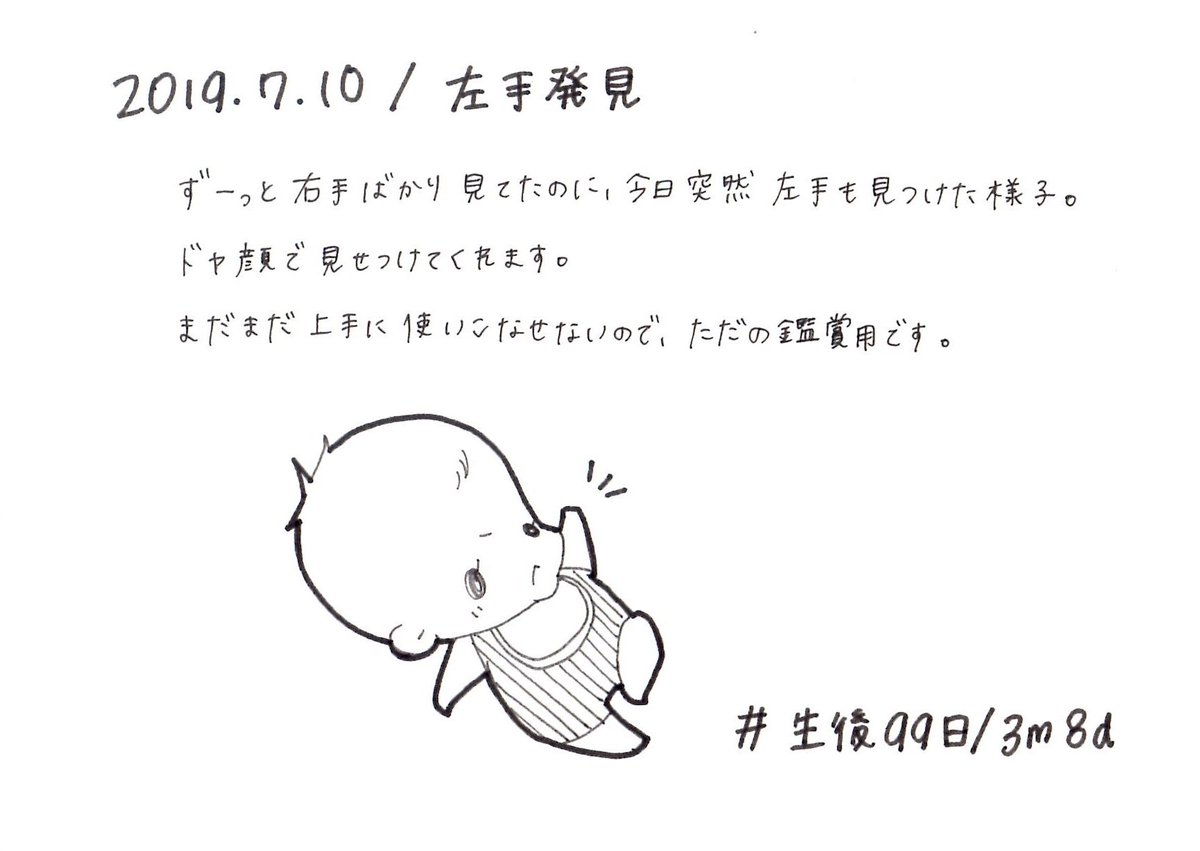 2019.7.10 / 左手発見
ずーっと右手ばかり見てたのに、今日突然左手も見つけた様子。
ドヤ顔で見せつけてくれます。
まだまだ上手に使いこなせないので、ただの鑑賞用です。
#生後99日/3m8d